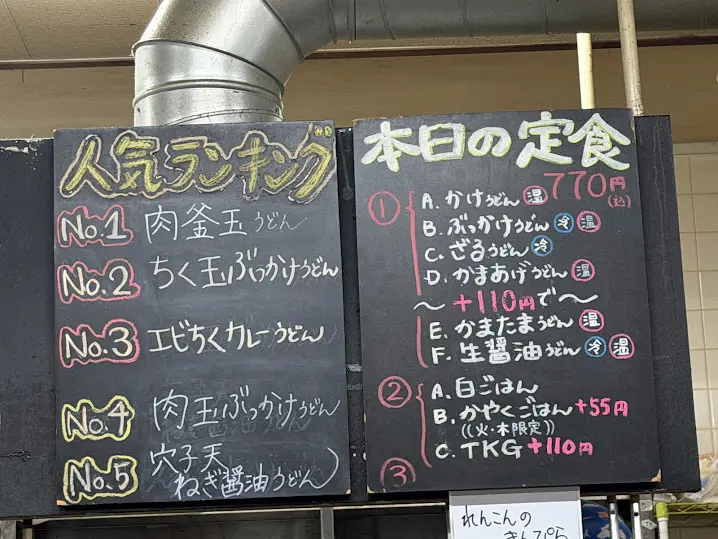 人気ランキング
No.1 肉釜玉うどん
No.2 ちく玉ぶっかけうどん
No.3 エビちくカレーうどん
No.4 肉玉ぶっかけうどん
No.5 穴子天
ねぎ醤油うどん
本日の定食
770円(込)
① A. かけうどん 温
B. ぶっかけうどん 冷 温
C. ざるうどん 冷
D. かまあげうどん 温
〜+110円で〜
E. かまたまうどん 温
F. 生醤油うどん 冷 温
② A. 白ごはん
B. かやくごはん +55円
((火・木限定))
C. TKG +110円
③
れんこんの
きんぴら